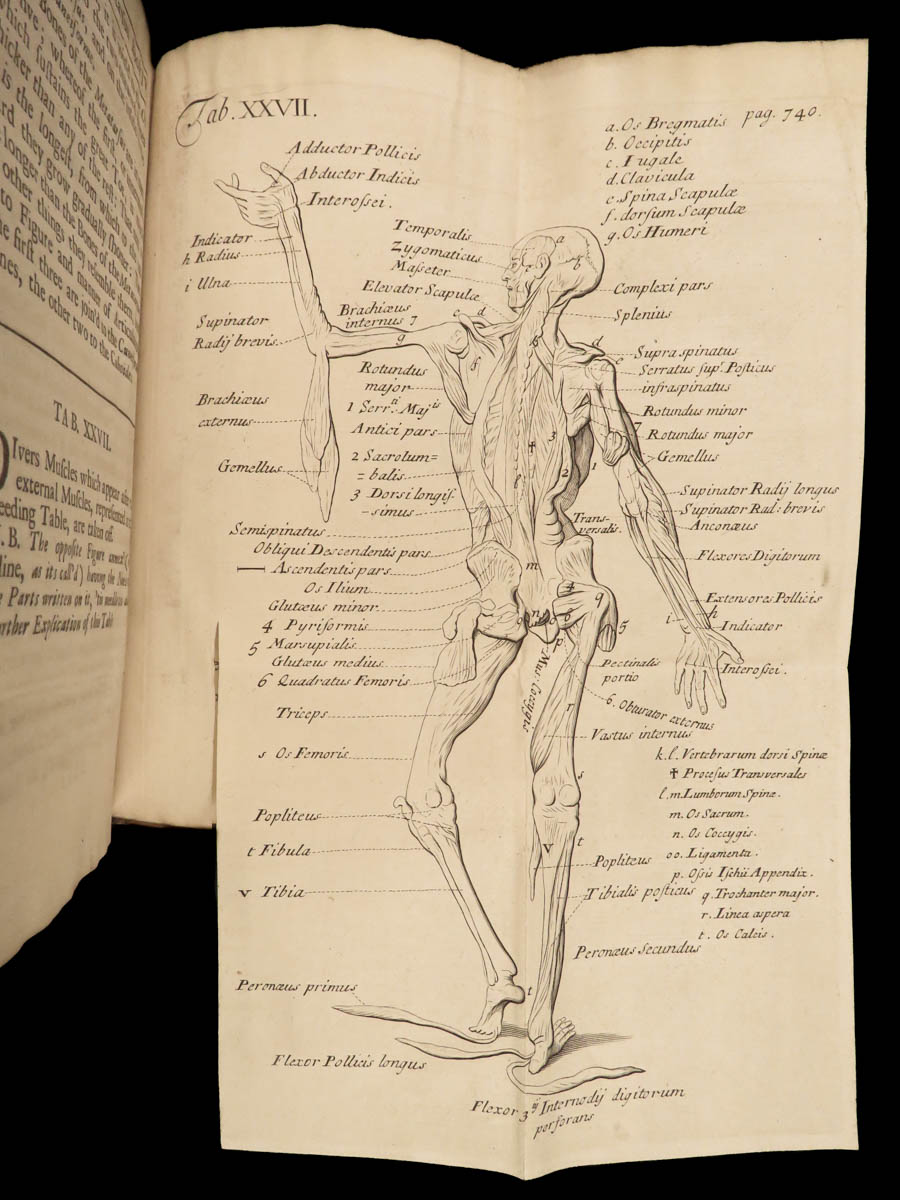 which sustains the great Toe,
thicker than any of the rest: That
is the longest, from which to
they grow gradually shorter:
longer than the Bones of the
other things they resemble them
to Figure and manner of
first three are join'd to the
the other two to the
TAB. XXVII.
DIvers Muscles which appear after
external Muscles, represented
eding Table, are taken off.
.B. The opposite Figure
line, as its call'd) having the
Parts written on it,
rther Explication of this Table
Tab. XXVII.
pag. 740.
a. Os Bregmatis
b. Occipitis
c. Iugale
d. Clavicula
e. Spina Scapulæ
f. dorsum Scapulæ
g. Os Humeri
Adductor Pollicis
Abductor Indicis
Interossei.
Indicator
h Radius
i Ulna
Supinator
Radij brevis.
Brachiæus
externus
Gemellus
Temporalis
Zygomaticus
Masseter
Elevator Scapulæ
Brachiæus
internus 7
Rotundus
major
1 Serr:ti Majis
Antici pars
2 Sacrolum=
=balis
3 Dorsi longis
-simus
Semispinatus
Obliqui Descendentis pars
Ascendentis pars
Os Ilium
Glutæus minor
4 Pyriformis
5 Marsupialis
Glutæus medius
6 Quadratus Femoris
Triceps
s Os Femoris
Popliteus
t Fibula
v Tibia
Peronæus primus
Flexor Pollicis longus
Flexor 3ij Internodij digitorum
perforans
Complexi pars
Splenius
Supra spinatus
Serratus sup.r Posticus
infraspinatus
Rotundus minor
Rotundus major
Gemellus
Supinator Radij longus
Supinator Rad: brevis
Anconæus
Trans-
versalis
Flexores Digitorum
Extensores Pollicis
Indicator
Interossei.
Pectinalis
portio
Mus. Coccygis
6. Obturator externus
Vastus internus
k.l. Vertebrarum dorsi Spinæ
✝ Procesus Transversales
l.m. Lumborum Spinæ.
m. Os Sacrum.
n. Os Coccygis.
oo. Ligamenta.
p. Ossis Ischii Appendix.
q. Trochanter major.
r. Linea aspera
t. Os Calcis.
Popliteus
Tibialis posticus
Peronæus Secundus